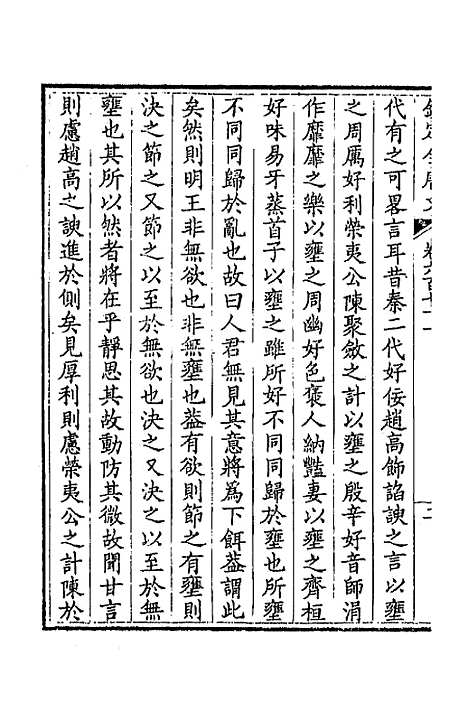 代有之可畧言耳昔秦二代好佞趙高飾諂諛之言以壅
之周厲好利榮夷公陳聚斂之計以壅之殷辛好音師涓
作靡靡之樂以壅之周幽好色襃人納豔妻以壅之齊桓
好味易牙蒸首子以壅之雖所好不同同歸於壅也所壅
不同同歸於亂也故曰人君無見其意將爲下餌葢謂此
矣然則明王非無欲也非無壅也葢有欲則節之有壅則
決之節之又節之以至於無欲也決之又決之以至於無
壅也其所以然者將在乎靜思其故動防其微故聞甘言
則慮趙高之諛進於側矣見厚利則慮榮夷公之計陳於